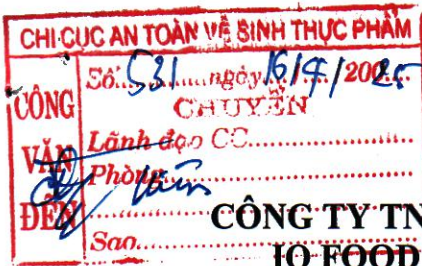 CHI CỤC AN TOÀN VỆ SINH THỰC PHẨM
CÔNG VĂN ĐẾN
Số: 531 ngày 16/4/2025
CHUYỂN
Lãnh đạo CC
Phòng
Sao
CÔNG TY TN
IQ FOOD